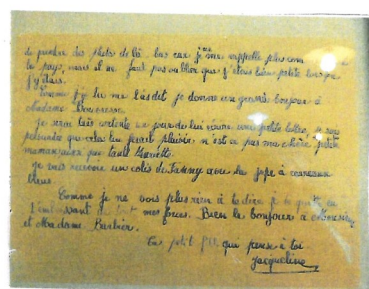 de prendre des photos de là-bas car je me rappelle plus com
le pays, mais il ne faut pas oublier que j'étais bien petite lorsque
j'y étais.
Comme tu me l'as dit je donne un grand bonjour à
Madame
Je serai très contente un jour de lui écrire une petite lettre, je suis
persuadée que cela lui ferait plaisir n'est ce pas ma chère petite
maman
je vais recevoir un colis de Fanny avec du jupe à carreaux
bleus.
Comme je ne vois plus rien à te dire je te quitte en
t'embrassant de mes forces. Bien le bonjour à Monsieur
et Madame Barbier.
Ta petite qui pense à toi
Jacqueline